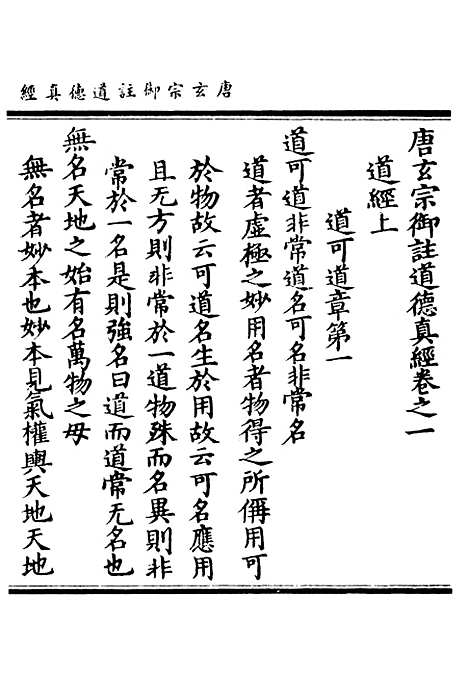 唐玄宗御註道德真經
唐玄宗御註道德真經卷之一
道經上
道可道章第一
道可道非常道名可名非常名
道者虛極之妙用名者物得之所偁用可
於物故云可道名生於用故云可名應用
且无方則非常於一道物殊而名異則非
常於一名是則強名曰道而道常无名也
無名天地之始有名萬物之母
無名者妙本也妙本見氣權輿天地天地